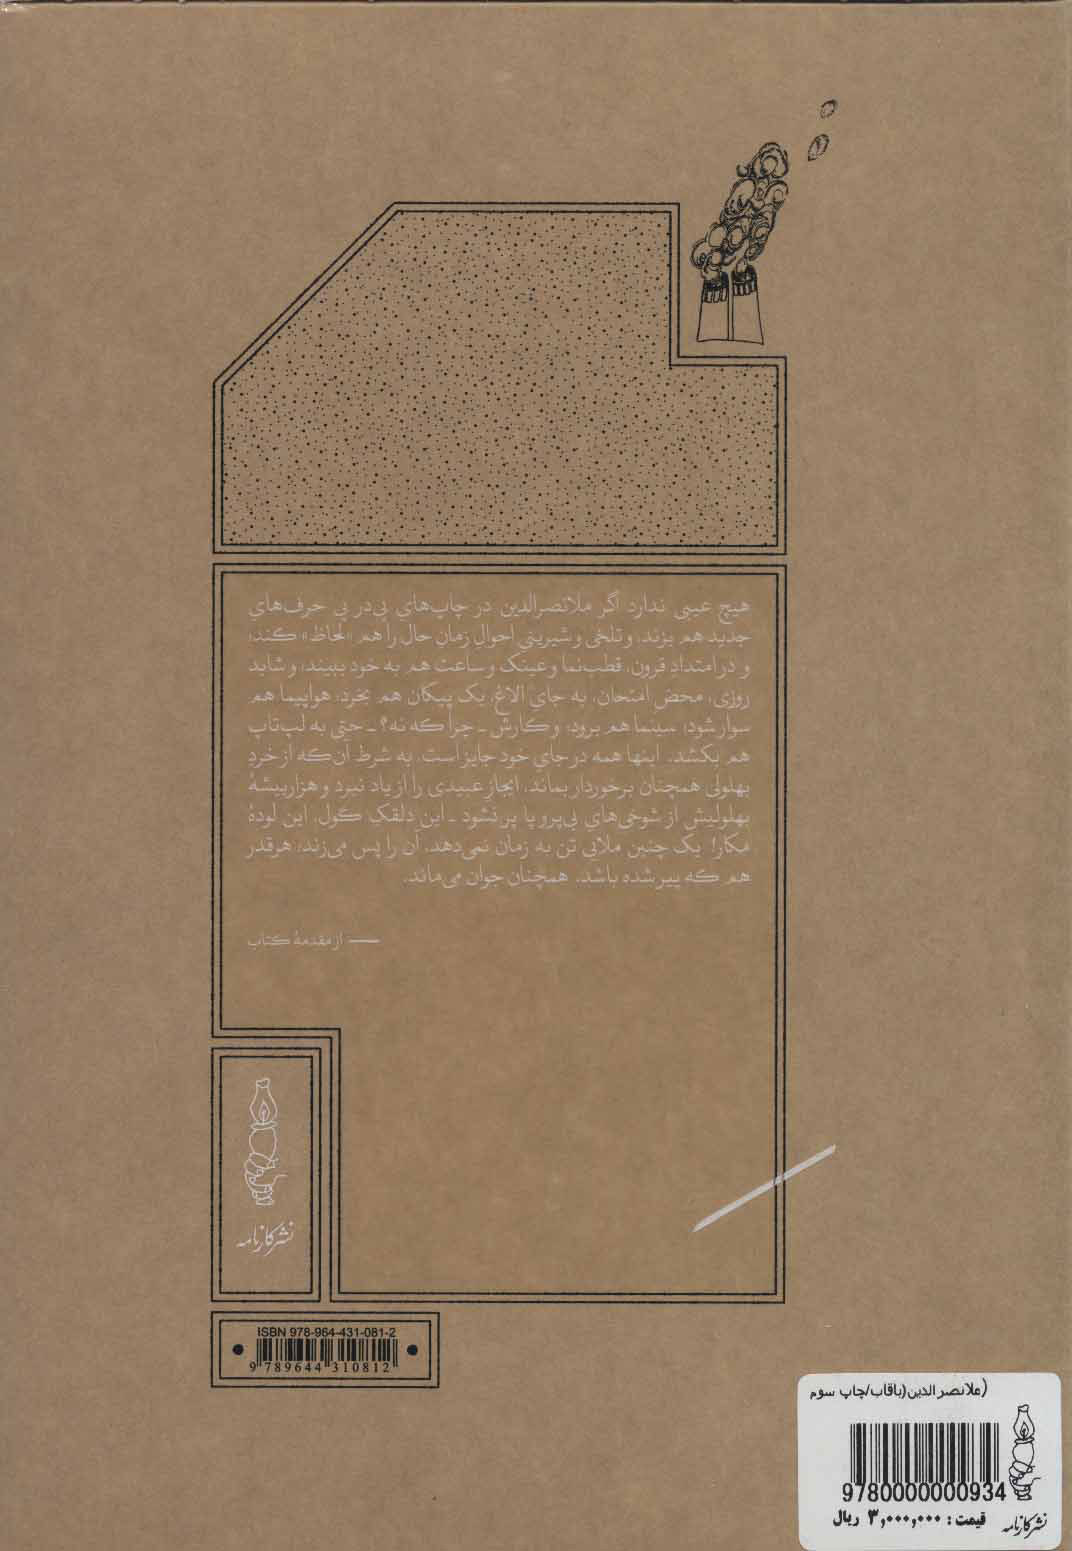 هیچ عیبی ندارد اگر ملانصرالدین در چاپ‌های پی‌در پی حرف‌های
جدید هم بزند، و تلخی و شیرینیِ احوالِ زمانِ حال را هم «لحاظ» کند؛
و در امتدادِ قرون، قطب‌نما و عینک و ساعت هم به خود ببیند، و شاید
روزی، محضِ امتحان، به جایِ الاغ، یک پیکان هم بخرد، هواپیما هم
سوار شود، سینما هم برود، و کارش ـ چرا که نه؟ ـ حتی به لپ‌تاپ
هم بکشد. اینها همه در جایِ خود جایز است، به شرط آن‌که از خردِ
بهلولی همچنان برخوردار بماند، ایجازِ عبیدی را از یاد نبرد و هزاربیشهٔ
بهلولیش از شوخی‌های بی‌پروپا پر نشود ـ این دلقکِ گول، این لودهٔ
مکار! یک چنین ملایی تن به زمان نمی‌دهد، آن را پس می‌زند؛ هرقدر
هم که پیر شده باشد، همچنان جوان می‌ماند.
— از مقدمهٔ کتاب
نشر کارنامه
ISBN 978-964-431-081-2
9 789644 310812
(ملانصرالدین(باقاب/چاپ سوم
9780000000934
قیمت: ۳,۰۰۰,۰۰۰ ریال
نشر کارنامه